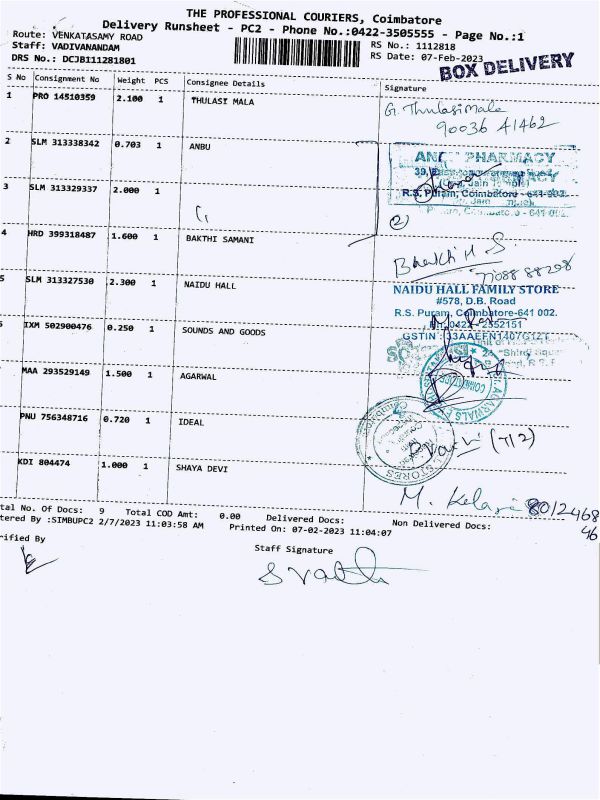 THE PROFESSIONAL COURIERS, Coimbatore
Delivery Runsheet - PC2 - Phone No.:0422-3505555 - Page No.:1
Route: VENKATASAMY ROAD
Staff: VADIVANANDAM
DRS No.: DCJB111281801
RS No.: 1112818
RS Date: 07-Feb-2023
BOX DELIVERY
S No Consignment No Weight PCS Consignee Details Signature
1 PRO 14510359 2.100 1 THULASI MALA
G. Thulasimala
90036 41462
2 SLM 313338342 0.703 1 ANBU
PHARMACY
R.S. Puram, Coimbatore - 641 002.
3 SLM 313329337 2.000 1
(,
2
4 HRD 399318487 1.600 1 BAKTHI SAMANI
Bhakti H S
5 SLM 313327530 2.300 1 NAIDU HALL
NAIDU HALL FAMILY STORE
#578, D.B. Road
R.S. Puram, Coimbatore-641 002.
2552151
GSTIN : 33AAEFN1407G1ZT
IXM 502900476 0.250 1 SOUNDS AND GOODS
MAA 293529149 1.500 1 AGARWAL
PNU 756348716 0.720 1 IDEAL
STORES
KDI 804474 1.000 1 SHAYA DEVI
tal No. Of Docs: 9 Total COD Amt: 0.00 Delivered Docs: Non Delivered Docs:
tered By :SIMBUPC2 2/7/2023 11:03:58 AM Printed On: 07-02-2023 11:04:07
rified By
Staff Signature